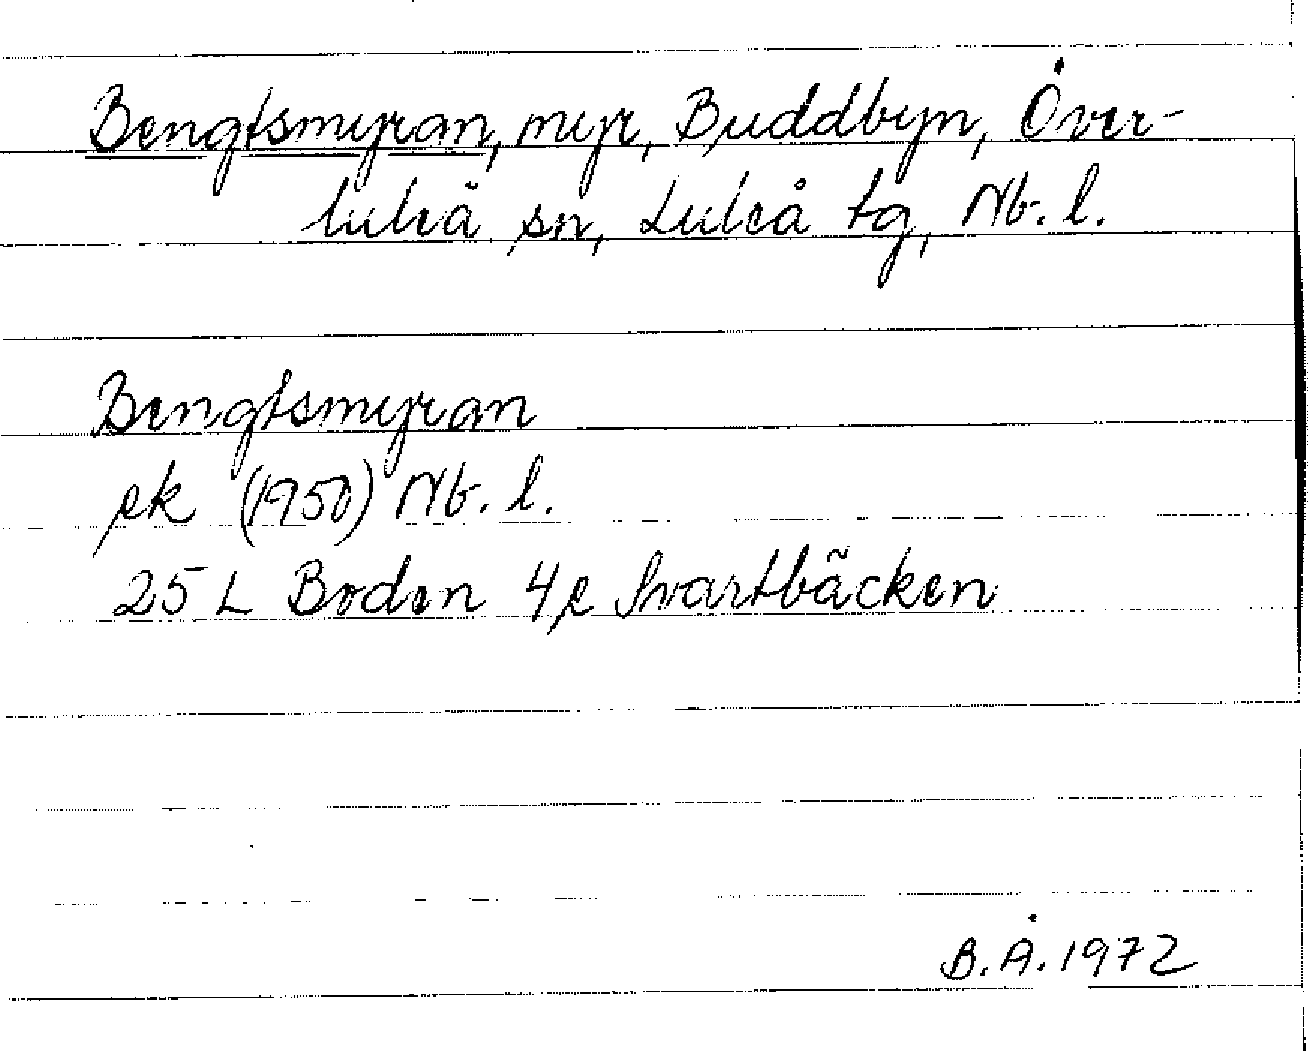 Bengtsmyran, myr, Buddbyn, Över-
luleå sn, Luleå tg, Nb. l.
Bengtsmyran
ek (1950) Nb. l.
25 L Boden 4e Svartbäcken
B.Å. 1972